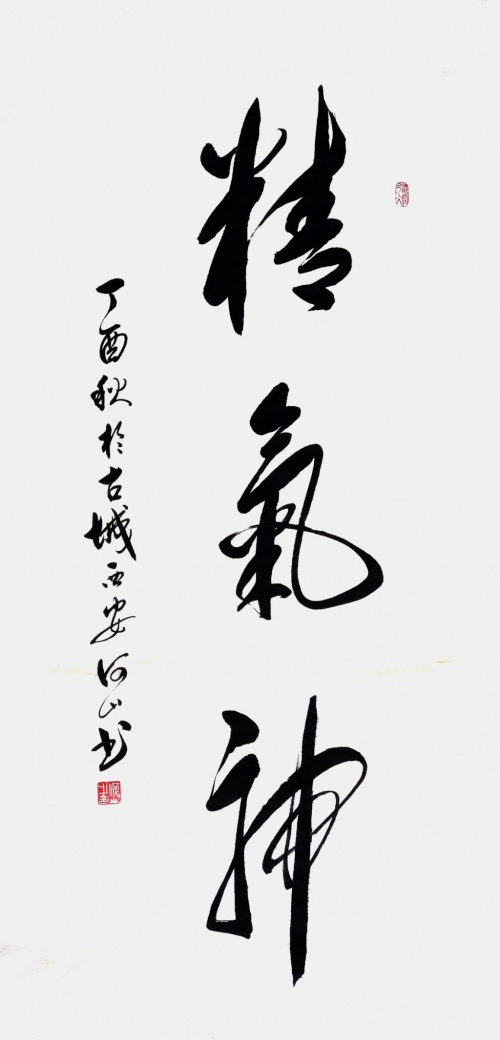 精氣神
丁酉秋於古城西安河山书